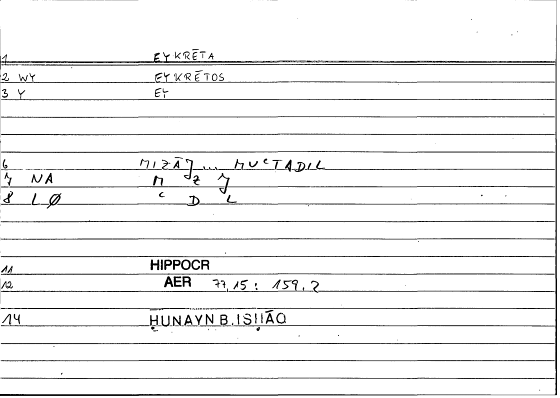 1 EYKRĒTA
2 WY EYKRĒTOS
3 Y EY
6 MIZĀJ ... MUCTADIL
7 NA M Z J
8 L Ø C D L
11 HIPPOCR
12 AER 77,15 : 159,2
14 ḤUNAYN B. ISḤĀQ